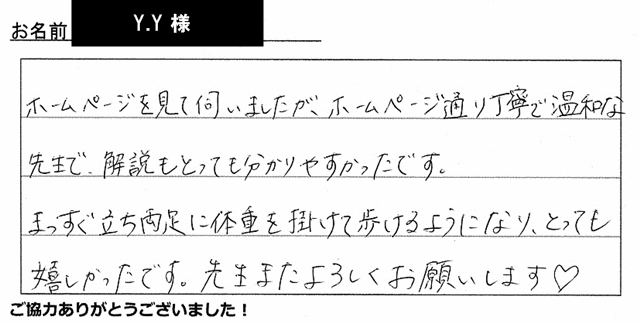 お名前 Y.Y 様
ホームページを見て伺いましたが、ホームページ通り丁寧で温和な
先生で、解説もとっても分かりやすかったです。
まっすぐ立ち両足に体重を掛けて歩けるようになり、とっても
嬉しかったです。先生またよろしくお願いします♡
ご協力ありがとうございました！